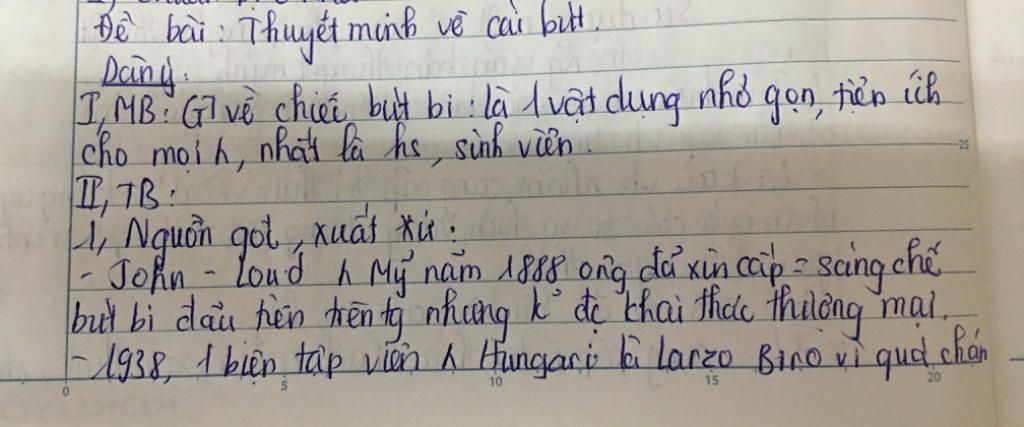 Đề bài: Thuyết minh về cái bút.
Dàn ý:
I, MB: GT về chiếc bút bi: là 1 vật dụng nhỏ gọn, tiện ích
cho mọi h, nhất là hs, sinh viên.
25
II, TB:
1, Nguồn gốt, xuất xứ:
- John - Loud h Mỹ năm 1888 ông đã xin cấp = sáng chế
bút bi đầu tiên trên tg nhưng k° đc khai thác thương mại.
- 1938, 1 biên tập viên h Hungari là Larzo Biro vì quá chán
0 5 10 15 20